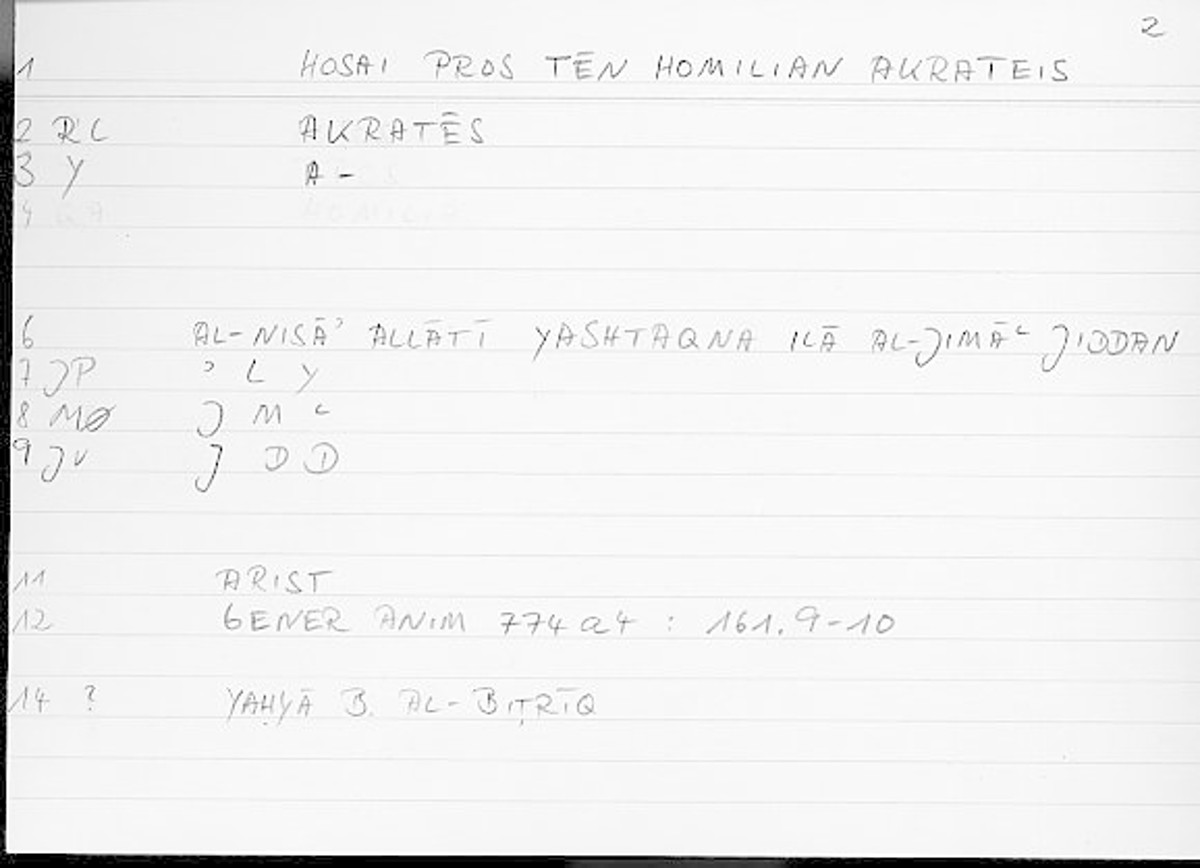 2
1 HOSAI PROS TĒN HOMILIAN AKRATEIS
2 RC AKRATĒS
3 Y A-
4 QA HOMILIA
6 AL-NISĀʾ ALLĀTĪ YASHTAQNA ILĀ AL-JIMĀʿ JIDDAN
7 JP ʾ L Y
8 MØ J M ʿ
9 JV J D D
11 ARIST
12 GENER ANIM 774a4 : 161.9-10
14 ? YAḤYĀ B. AL-BIṬRĪQ